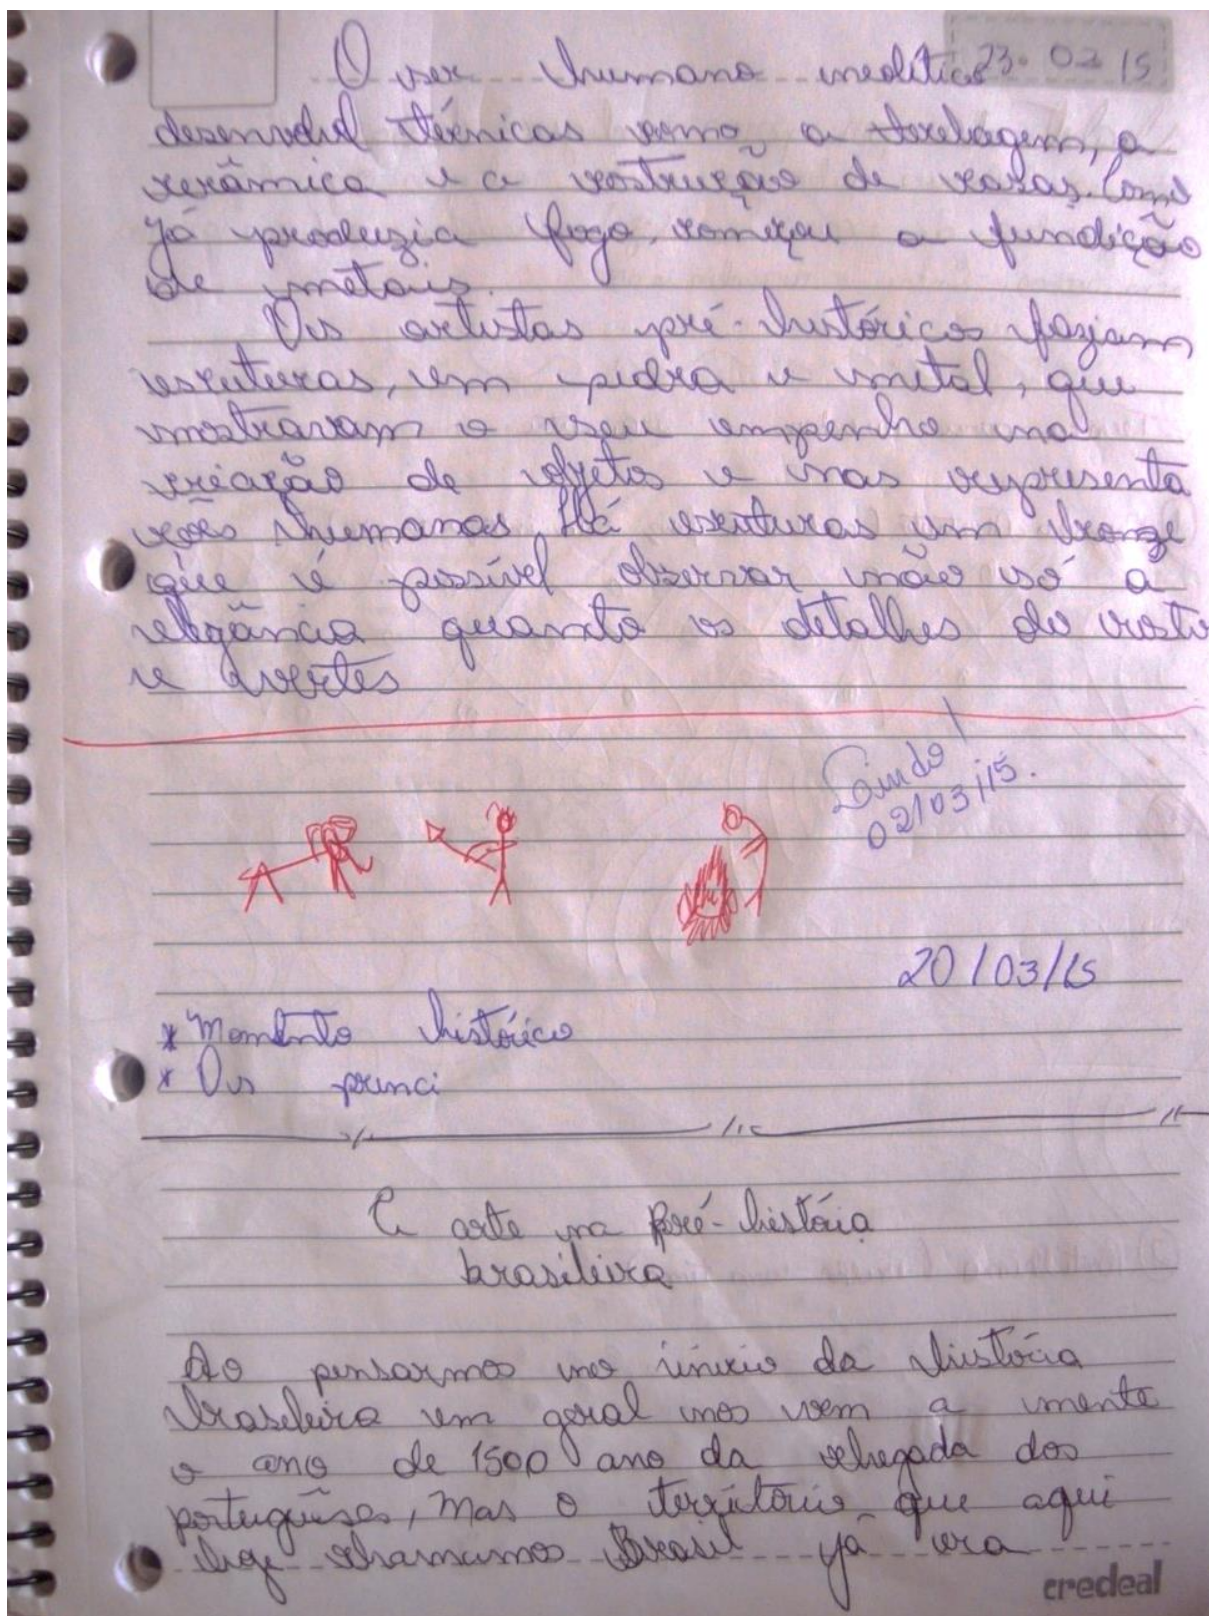 23.02 15
O ser humano neolítico
desenvolvel técnicas como a tecelagem, a
cerâmica e a costrução de casas. Como
já produzia fogo, começou a fundição
de metais.
Os artistas pré-históricos faziam
escuturas, em pedra e metal, que
mostravam o seu empenho na
criação de objetos e nas representa
ções humanas. Há escuturas em bronze
que é possível observar não só a
elegância quanto os detalhes do rosto
e vestes
Lindo!
02/03/15.
20/03/15
* Momento histórico
* Os princi
A arte na Pré-história
brasileira
Ao pensarmos no início da história
brasileira em geral nos vem a mente
o ano de 1500 ano da chegada dos
portugueses, Mas o território que aqui
hoje chamamos Brasil já era
credeal